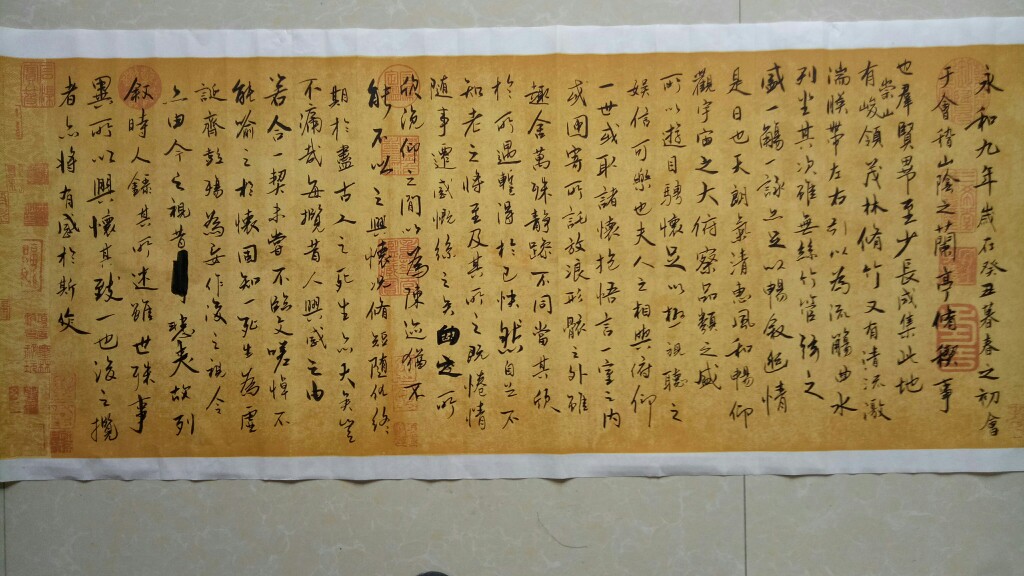 永和九年歲在癸丑暮春之初會
于會稽山陰之蘭亭脩稧事
也羣賢畢至少長咸集此地
有崇山峻領茂林脩竹又有清流激
湍暎帶左右引以為流觴曲水
列坐其次雖無絲竹管弦之
盛一觴一詠亦足以暢敘幽情
是日也天朗氣清惠風和暢仰
觀宇宙之大俯察品類之盛
所以遊目騁懷足以極視聽之
娛信可樂也夫人之相與俯仰
一世或取諸懷抱悟言一室之內
或因寄所託放浪形骸之外雖
趣舍萬殊靜躁不同當其欣
於所遇蹔得於己怏然自足不
知老之將至及其所之既惓情
隨事遷感慨係之矣向之所
欣俛仰之閒以為陳迹猶不
能不以之興懷况脩短隨化終
期於盡古人云死生亦大矣豈
不痛哉每攬昔人興感之由
若合一契未嘗不臨文嗟悼不
能喻之於懷固知一死生為虛
誕齊彭殤為妄作後之視今
亦由今之視昔悲夫故列
敘時人錄其所述雖世殊事
異所以興懷其致一也後之攬
者亦將有感於斯文